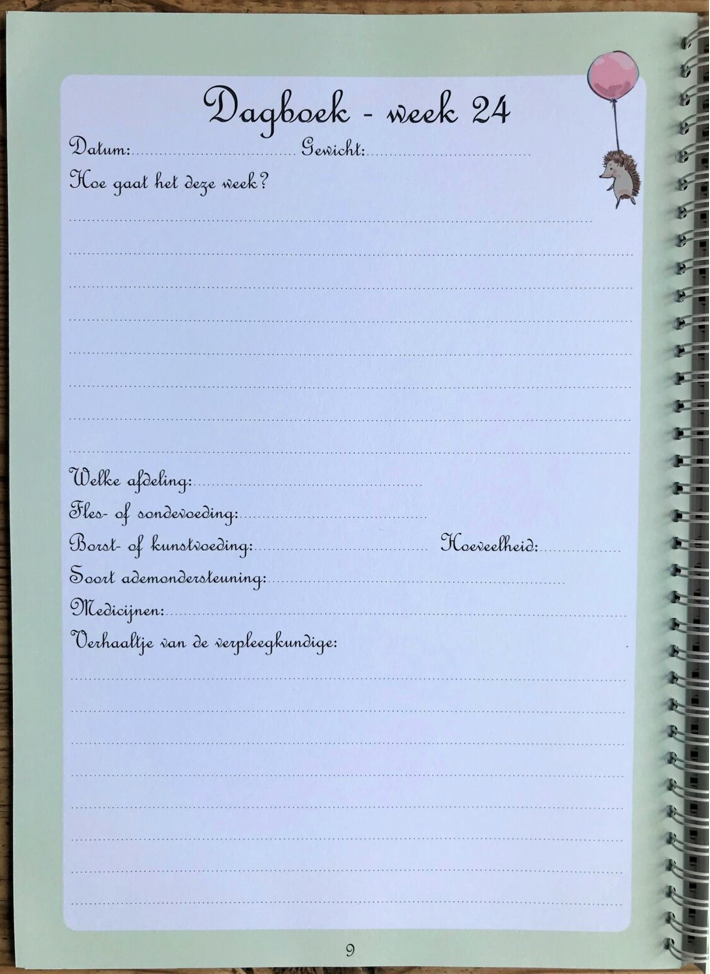 Dagboek - week 24
Datum: Gewicht:
Hoe gaat het deze week?
Welke afdeling:
Fles- of sondevoeding:
Borst- of kunstvoeding: Hoeveelheid:
Soort ademondersteuning:
Medicijnen:
Verhaaltje van de verpleegkundige:
9